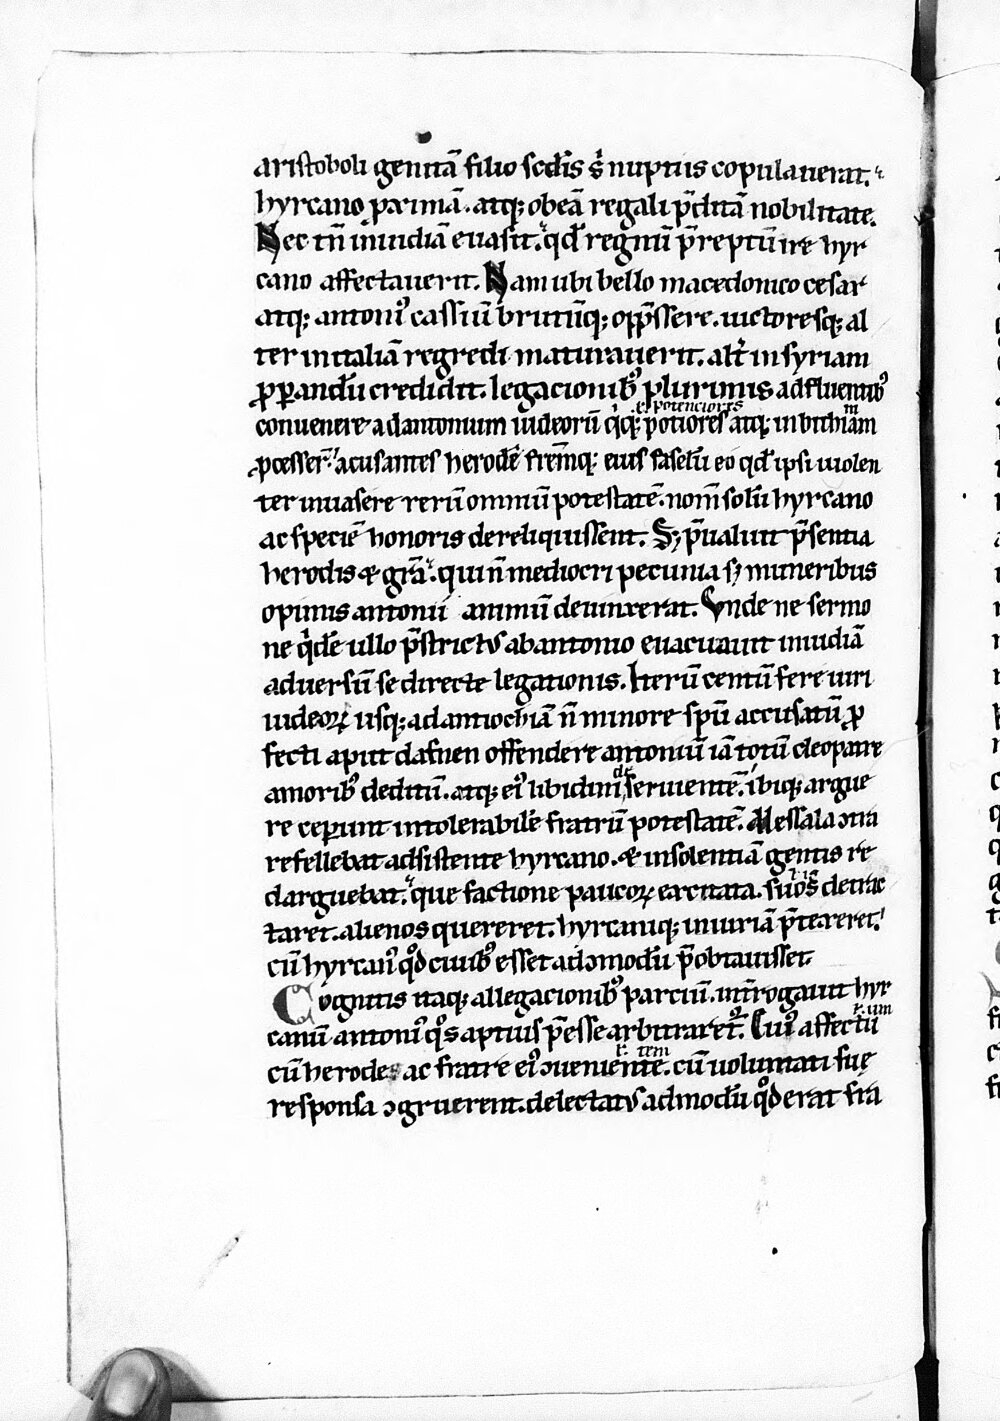 aristoboli genitā filio scd̄is s; nuptiis copulauerat.
hyrcano p̱ximā. atq; obeā regali p̄ditā nobilitate.
Nec tn̄ inuidiā euasit. qd̄ regnū p̄reptū ire hyr
cano affectauerit. Nam ubi bello macedonico cesar
atq; antoni᷒ cassiū brutūq; opp̄ssere. uictoresq; al
ter initaliā regredi maturauerit. alt̄ insyriam
p̱p̱andū credidit. legacionib᷒ plurimis adfluentib᷒
ł potenciores m
conuenere adantonium iudeorū q̇q; potiores atq; inbithiam
p̱cesser̄. acusantes herodē frēmq; eius faselū eo qd̄ ipsi uiolen
ter inuasere rerū omniū potestatē. nom̄ solū hyrcano
ac speciē honoris dereliquissent. Sꝫ p̄ualuit p̄sentia
herodis & gr̄a. qui n̄ mediocri pecunia sꝫ muneribus
opimis antonii animū deuinxerat. Vnde ne sermo
ne q̇dē ullo p̄strictus abantonio euacuauit inuidiā
aduersū se directe legationis. Iterū centū fere uiri
iudeoꝝ usq; adantiochiā n̄ minore spū accusatū p̱
fecti aput dafnen offendere antoniū iā totū cleopatre
de
amorib᷒ deditū. atq; ei᷒ libidini seruientē. ibiq; argue
re ceperunt intolerabilē fratrū potestatē. Messala ↄtra
refellebat adsistente hyrcano. & insolentiā gentis re
ł is
darguebat. que factione paucoꝝ excitata. suos detrac
taret. alienos quereret. hyrcaniq; iniuriā p̄texeret.
cū hyrcan᷒ qͦd ciuib᷒ esset adↄmodū p̄obtauisset.
Cognitis itaq; allegacionib᷒ parciū. int̄rogauit hyr
ł um
canū antoni᷒ qͦs aptius p̄esse arbitraret᷑. Cui᷒ affectū
ł tem
cū herode ac fratre ei᷒ ↄueniente. cū uoluntati suę
responsa ↄgruerent. delectatus admodū qͦd erat fra